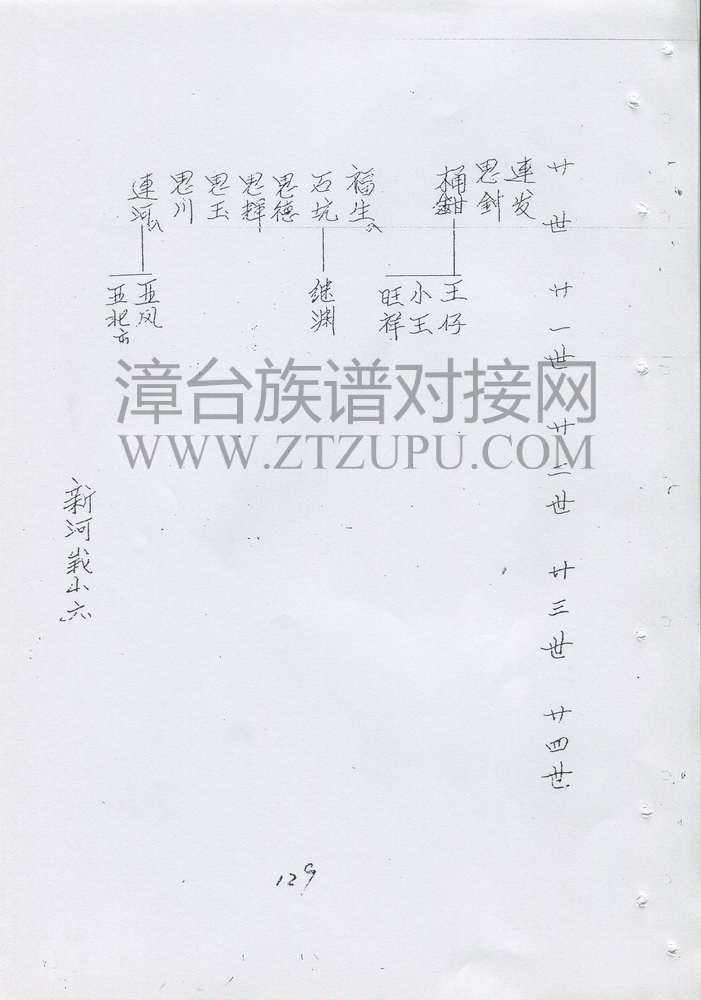 廿世 廿一世 廿二世 廿三世 廿四世
連发
思針
桶鉗
福生
石坑
思德
思輝
思玉
思川
連河
王仔
小王
旺祥
继渊
亚风
亚
新河
漳台族谱对接网
WWW.ZTZUPU.COM
129